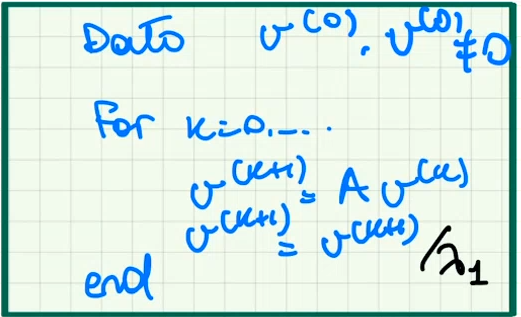 Dato v^(0), v^(0) ≠ 0
For k=0,....
v^(k+1) = A v^(k)
v^(k+1) = v^(k+1) /λ1
end